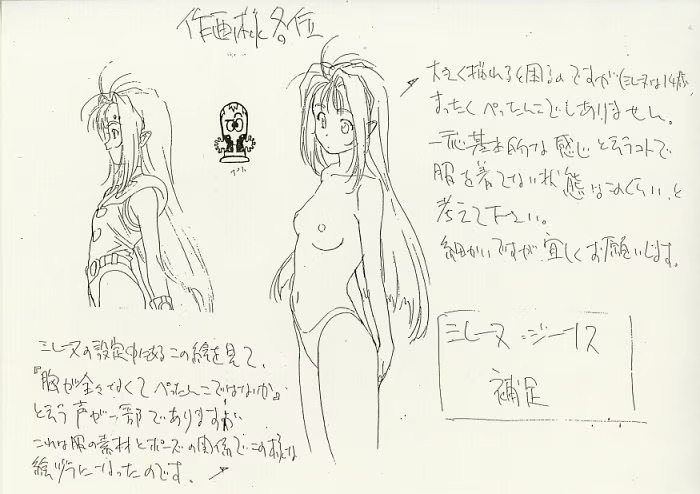 作画様各位
大きく描かれると困るのですが(ミレーヌは14歳)
まったくぺったんこでもありません。
一応基本的な感じと言うコトで
服を着てない状態はこのくらい、と
考えて下さい。
細かいですが宜しくお願いします。
ミレーヌ・ジーナス
補足
ミレーヌの設定中にあるこの絵を見て、
『胸が全々なくてぺったんこではないか。』
と言う声が一部でありますが
これは服の素材とポーズの関係でこの様な
絵ヅラになったのです。